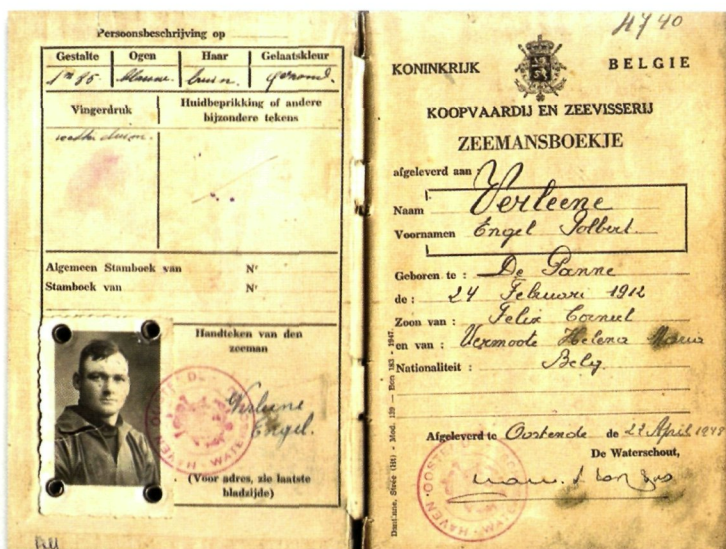 Persoonsbeschrijving op
Gestalte Ogen Haar Gelaatskleur
1m 85 blauw. bruin. gezond.
Vingerdruk
Huidbeprikking of andere
bijzondere tekens
rechter duim.
Algemeen Stamboek van Nr
Stamboek van Nr
Handteken van den
zeeman
Verleene
Engel.
(Voor adres, zie laatste
bladzijde)
4740
KONINKRIJK BELGIE
KOOPVAARDIJ EN ZEEVISSERIJ
ZEEMANSBOEKJE
afgeleverd aan :
Naam Verleene
Voornamen Engel
Geboren te : De Panne
de : 24 Februari 1912
Zoon van : Felix
en van : Vermoote Helena Maria
Nationaliteit : Belg
Afgeleverd te Oostende de April
De Waterschout,